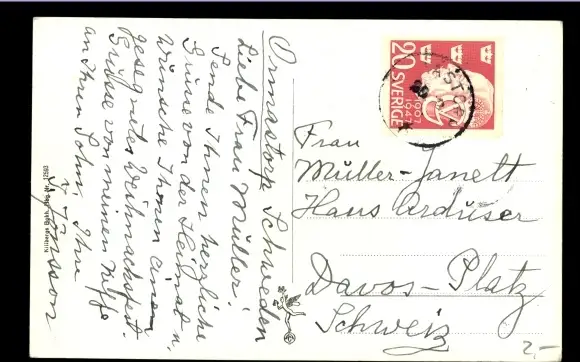 Ormastorp Schweden
Liebe Frau Müller!
Sende Ihnen herzliche
Grüsse von der Heimat u.
Wünsche Ihnen einen
gesegnetes Weihnachtsfest.
Grüsse von meinen Neffe
an Ihren Sohn, Ihre
Jönsson
20
SVERIGE
1907
1947
Frau
Müller-Janett
Haus Ardüser
Davos-Platz
Schweiz
2.-